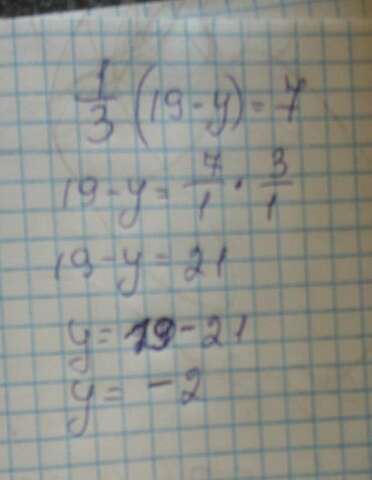 1/3 (19 - y) = 7
19 - y = 7/1 · 3/1
19 - y = 21
y = 19 - 21
y = - 2